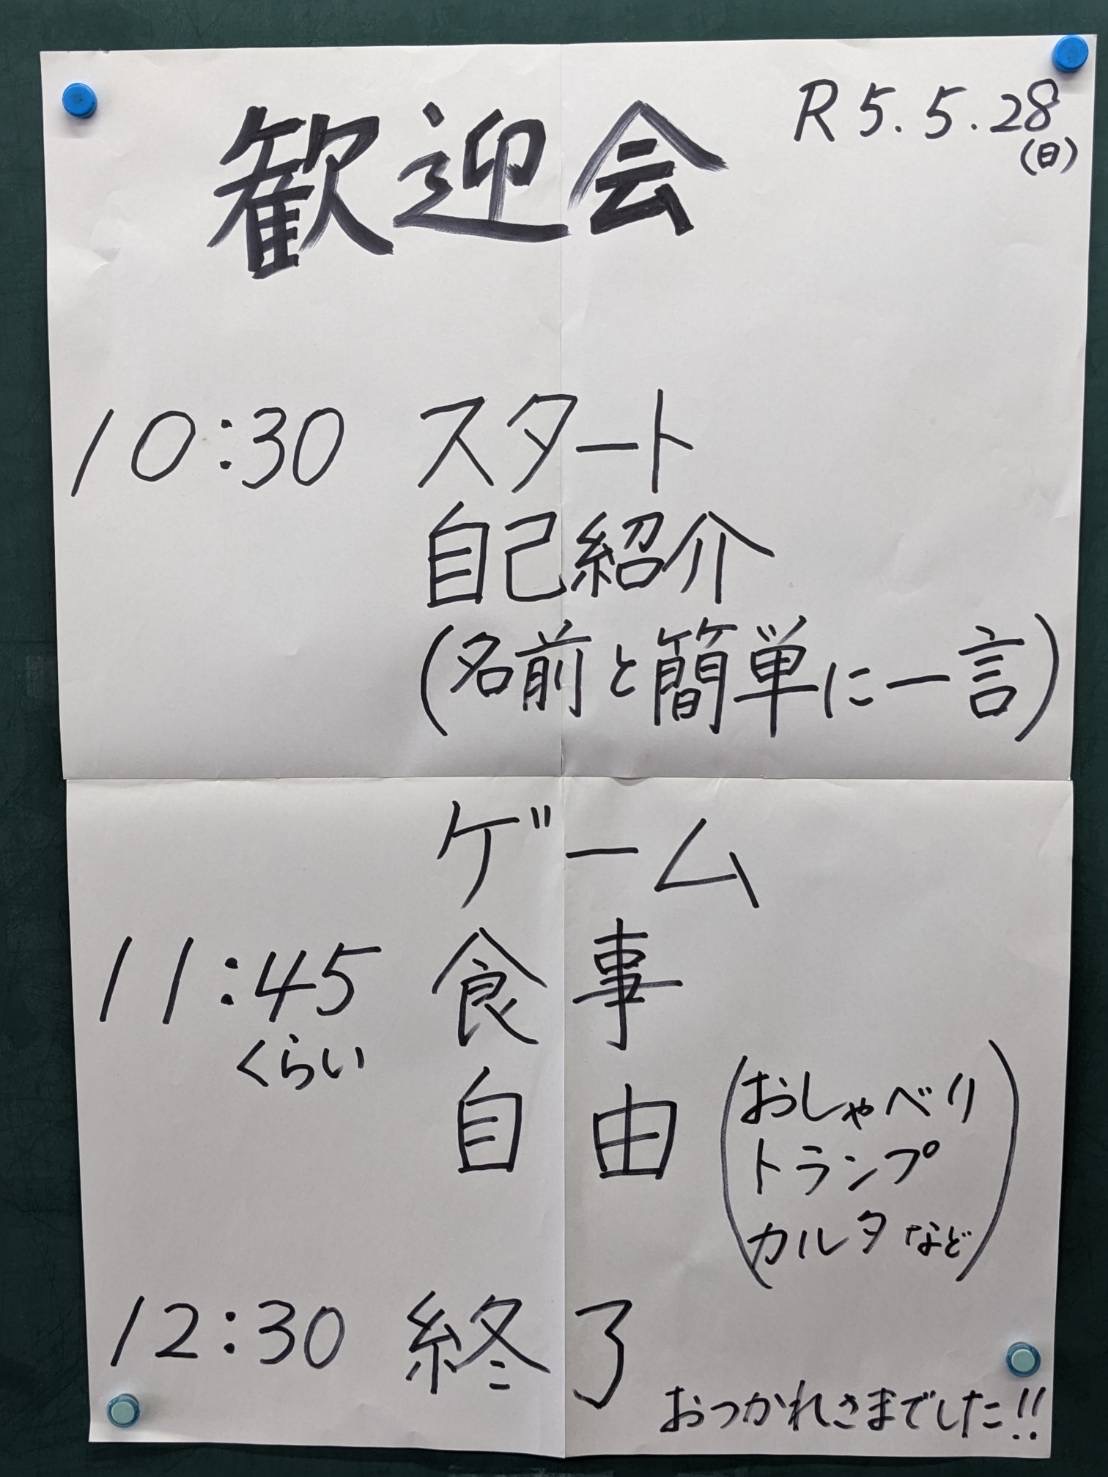 歓迎会
R5.5.28
(日)
10:30 スタート
自己紹介
(名前と簡単に一言)
ゲーム
11:45 食事
くらい
自由
(おしゃべり
トランプ
カルタなど)
12:30 終了
おつかれさまでした!!